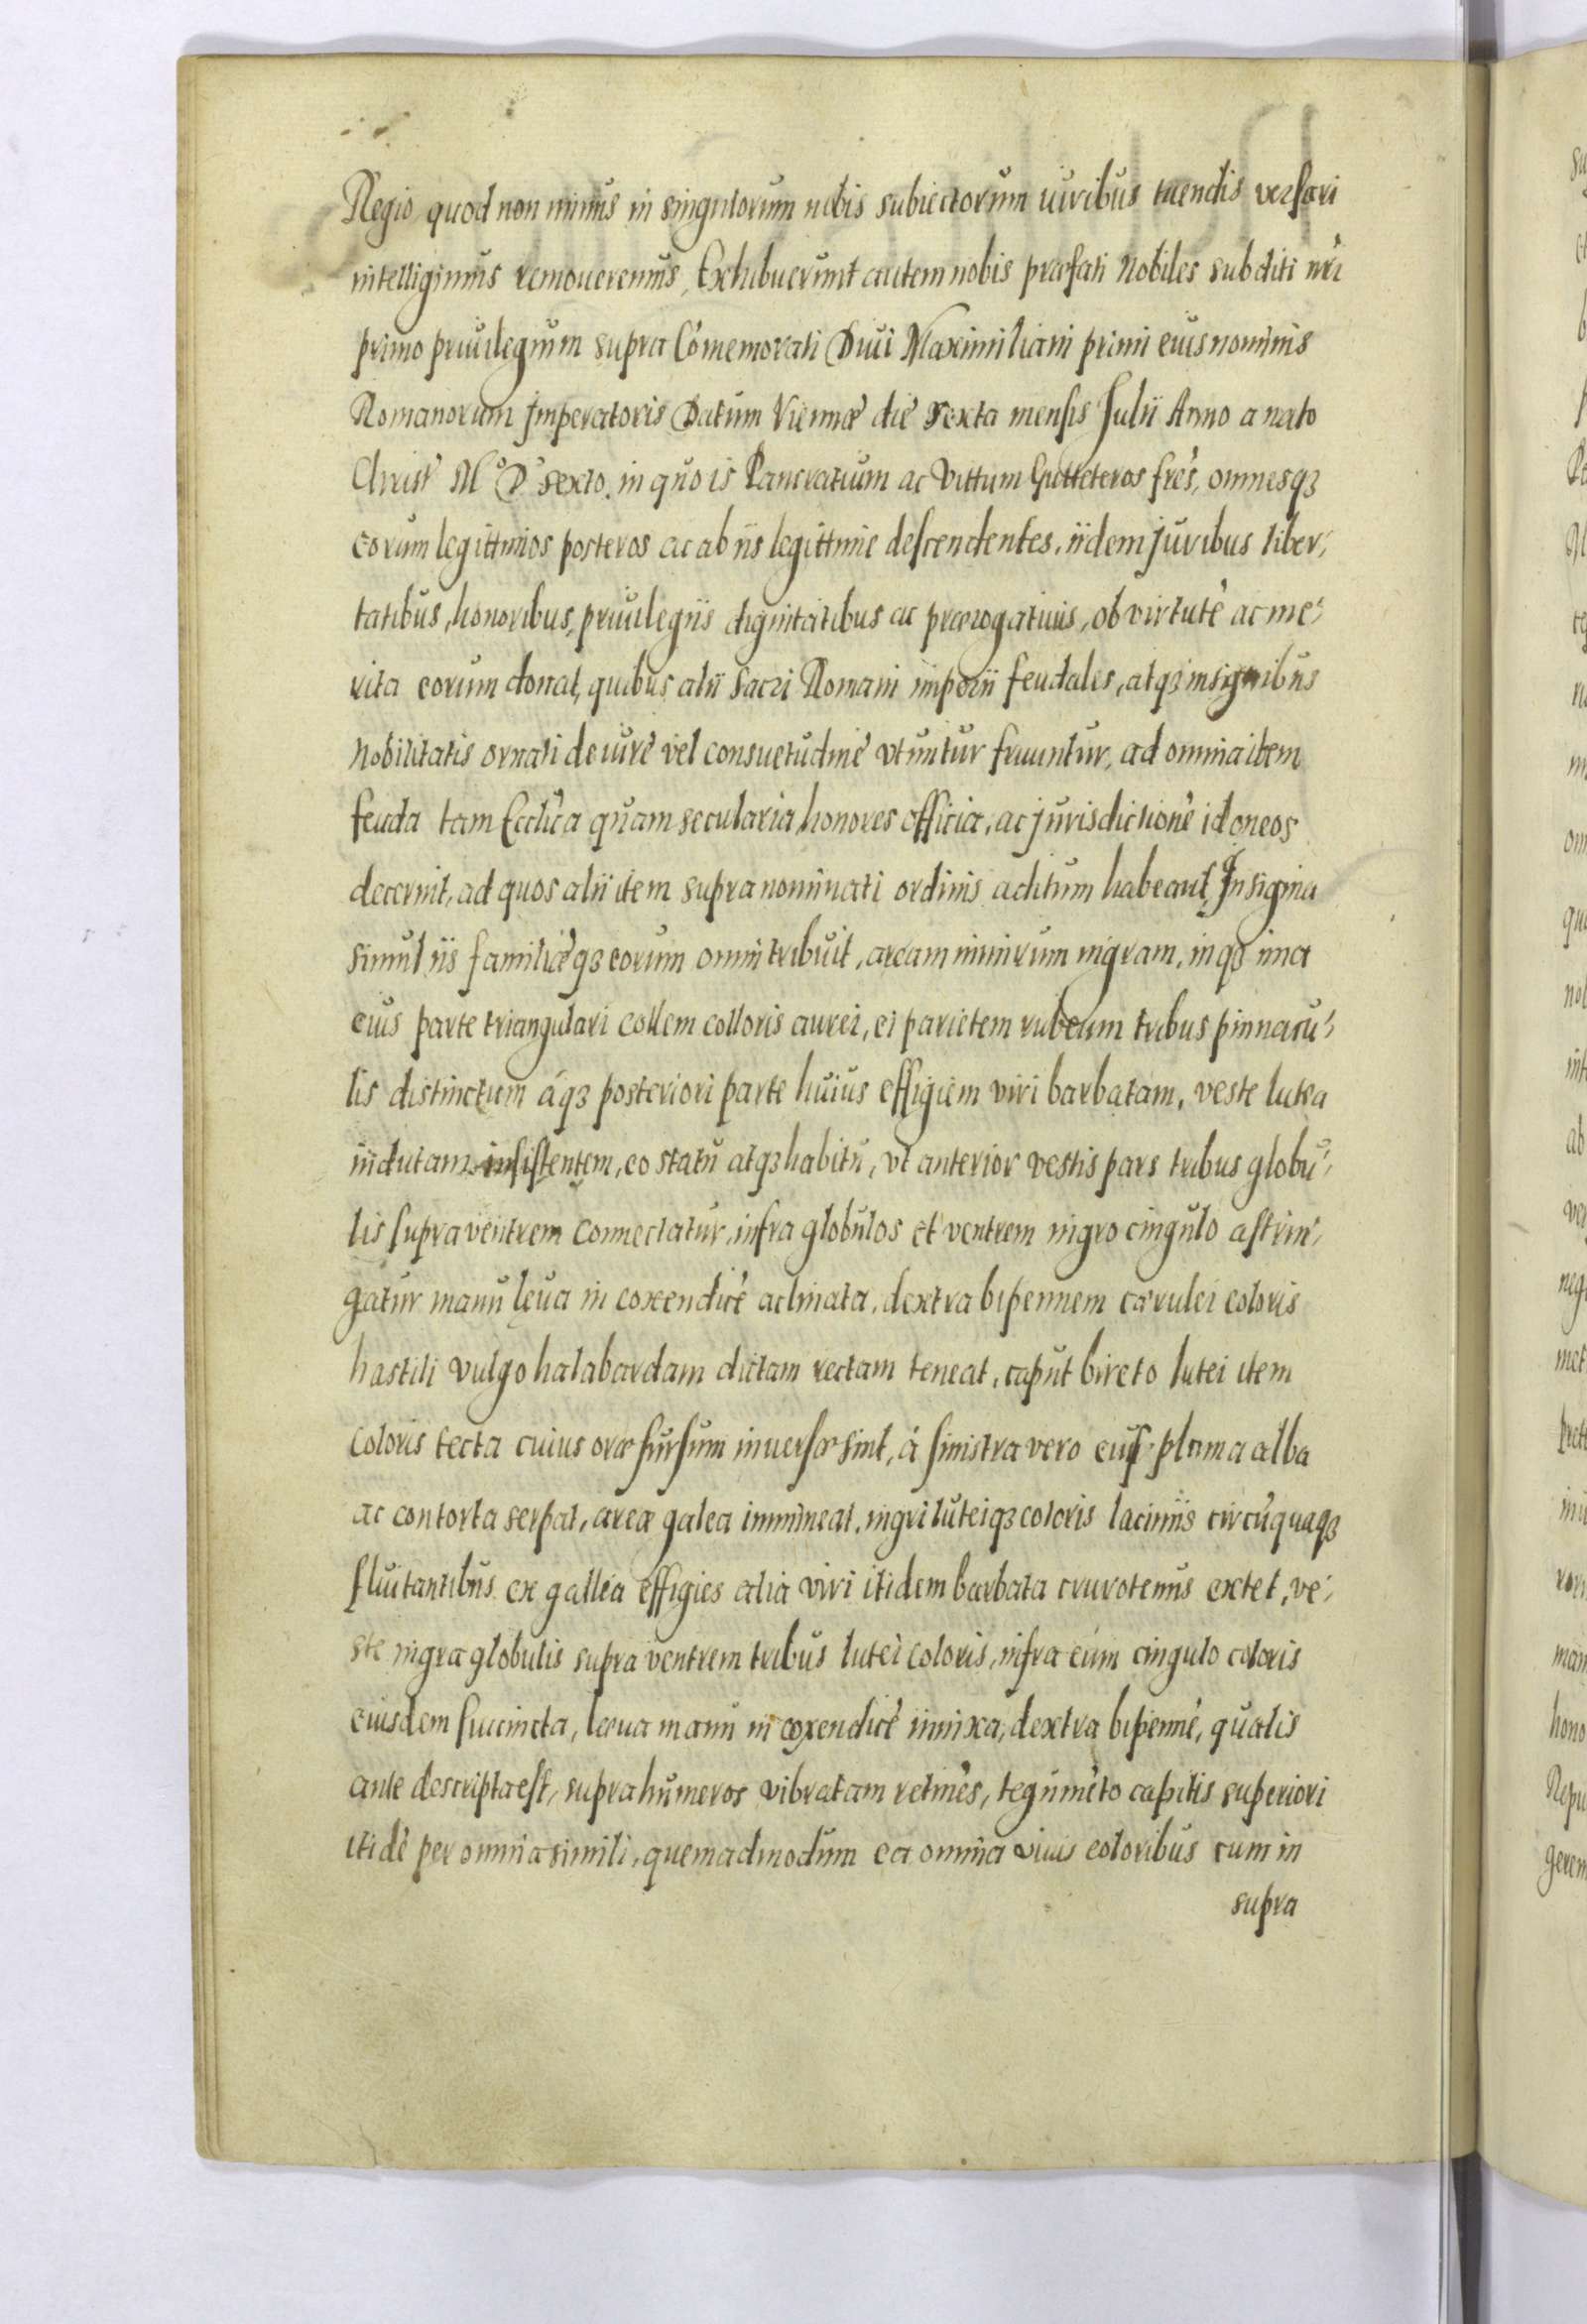 Regio quod non minus in singulorum nobis subiectorum iuribus tuendis versari
intelligimus remoueremus, Exhibuerunt autem nobis præfati Nobiles subditi nr̃i
primo priuilegium supra Cõmemorati Diui Maximiliani primi eius nominis
Romanorum Imperatoris Datum Viennæ die sexta mensis Julii Anno a nato
Christ' M° D° sexto, in quo is Pancratium ac Vittum frẽs, omnesqz
eorum legittimos posteros ac ab iis legittimè descendentes, iidem juribus liber,
tatibus, honoribus, priuilegiis dignitatibus ac prærogatiuis, ob virtutẽ ac me,
rita eorum donat, quibus alii Sacri Romani imperii feudales, atqz insignibus
Nobilitatis ornati de iurẽ vel consuetudinẽ vtuntur fruuntur, ad omnia item
feuda tam Ecclĩca quam secularia, honores officia, ac jurisdictionẽ idoneos
decernit, ad quos alii item supra nominati ordinis aditum habeant, Insignia
simul iis familiæqz eorum omni tribuit, aream nimirum nigram, in qz ima
eius parte triangulari collem colloris aurei, ei parietem rubeum tribus pinnacu,
lis distinctum áqz posteriori parte huius effigiem viri barbatam, veste lutea
indutam insistentem, eo statu atqz habitu, vt anterior vestis pars tribus globu,
lis supra ventrem connectatur, infra globulos et ventrem nigro cingulo astrin,
gatur manu leua in coxendicẽ aclinata, dextra bipennem cærulei coloris
hastili vulgo halabardam dictam rectam teneat, caput bireto lutei item
coloris tecta cuius oræ sursum inuersæ sint, á sinistra vero eius pluma alba
ac contorta serpat, areæ galea immineat, nigri luteiqz coloris laciniis circũquaqz
fluitantibus ex gallea effigies alia viri itidem barbata crurotenus extet, ve,
ste nigra globulis supra ventrem tribus lutei coloris, infra eum cingulo coloris
eiusdem succincta, læua manu in coxendicẽ innixa, dextra bipennẽ, qualis
ante descripta est, supra humeros vibratam retinẽs, tegumẽto capitis superiori
itidẽ per omnia simili, quemadmodum ea omnia viuis coloribus cum in
supra